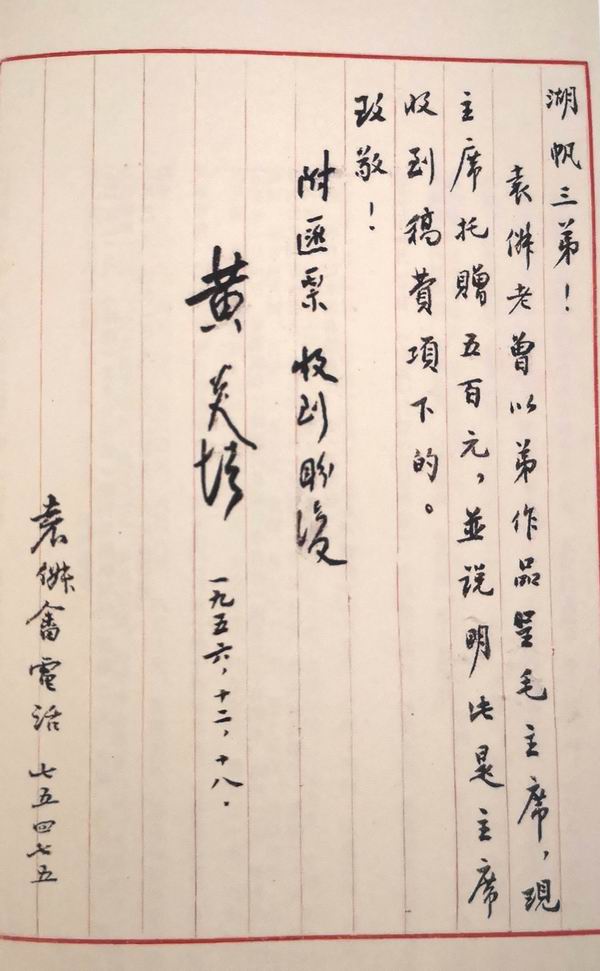 湖帆三弟！
袁傑老曾以弟作品呈毛主席，現
主席托贈五百元，並説明此是主席
收到稿費項下的。
致敬！
附匯票 收到盼復
黄炎培
一九五六，十二，十八．
袁傑畬電话 七五四七五